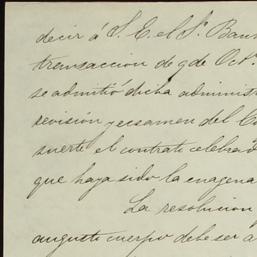 decir á S. E. el Sr. Ban
transaccion de 9 de Oct.
se admitió dicha administ
revisión y ecsamen del C
suerte el contrato celebrad
que haya sido la enagena
La resolucion
augusto cuerpo debe ser a